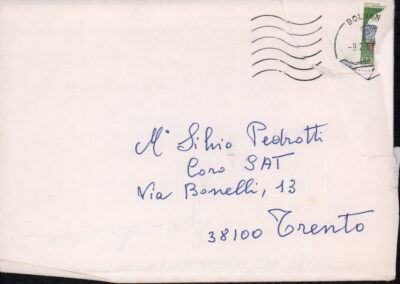 BOL
-9
M° Silvio Pedrotti
Coro SAT
Via Bonelli, 13
38100 Trento